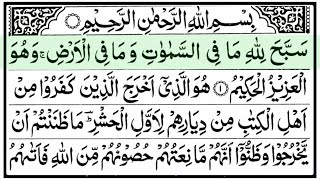 بِسْمِ اللهِ الرَّحْمٰنِ الرَّحِيْمِ
سَبَّحَ لِلّٰهِ مَا فِي السَّمٰوٰتِ وَمَا فِي الْاَرْضِ ۚ وَهُوَ
الْعَزِيْزُ الْحَكِيْمُ ۝۱ هُوَ الَّذِيْٓ اَخْرَجَ الَّذِيْنَ كَفَرُوْا مِنْ
اَهْلِ الْكِتٰبِ مِنْ دِيَارِهِمْ لِاَوَّلِ الْحَشْرِ ؔ مَا ظَنَنْتُمْ اَنْ
يَّخْرُجُوْا وَظَنُّوْٓا اَنَّهُمْ مَّانِعَتُهُمْ حُصُوْنُهُمْ مِّنَ اللهِ فَاَتٰىهُمُ